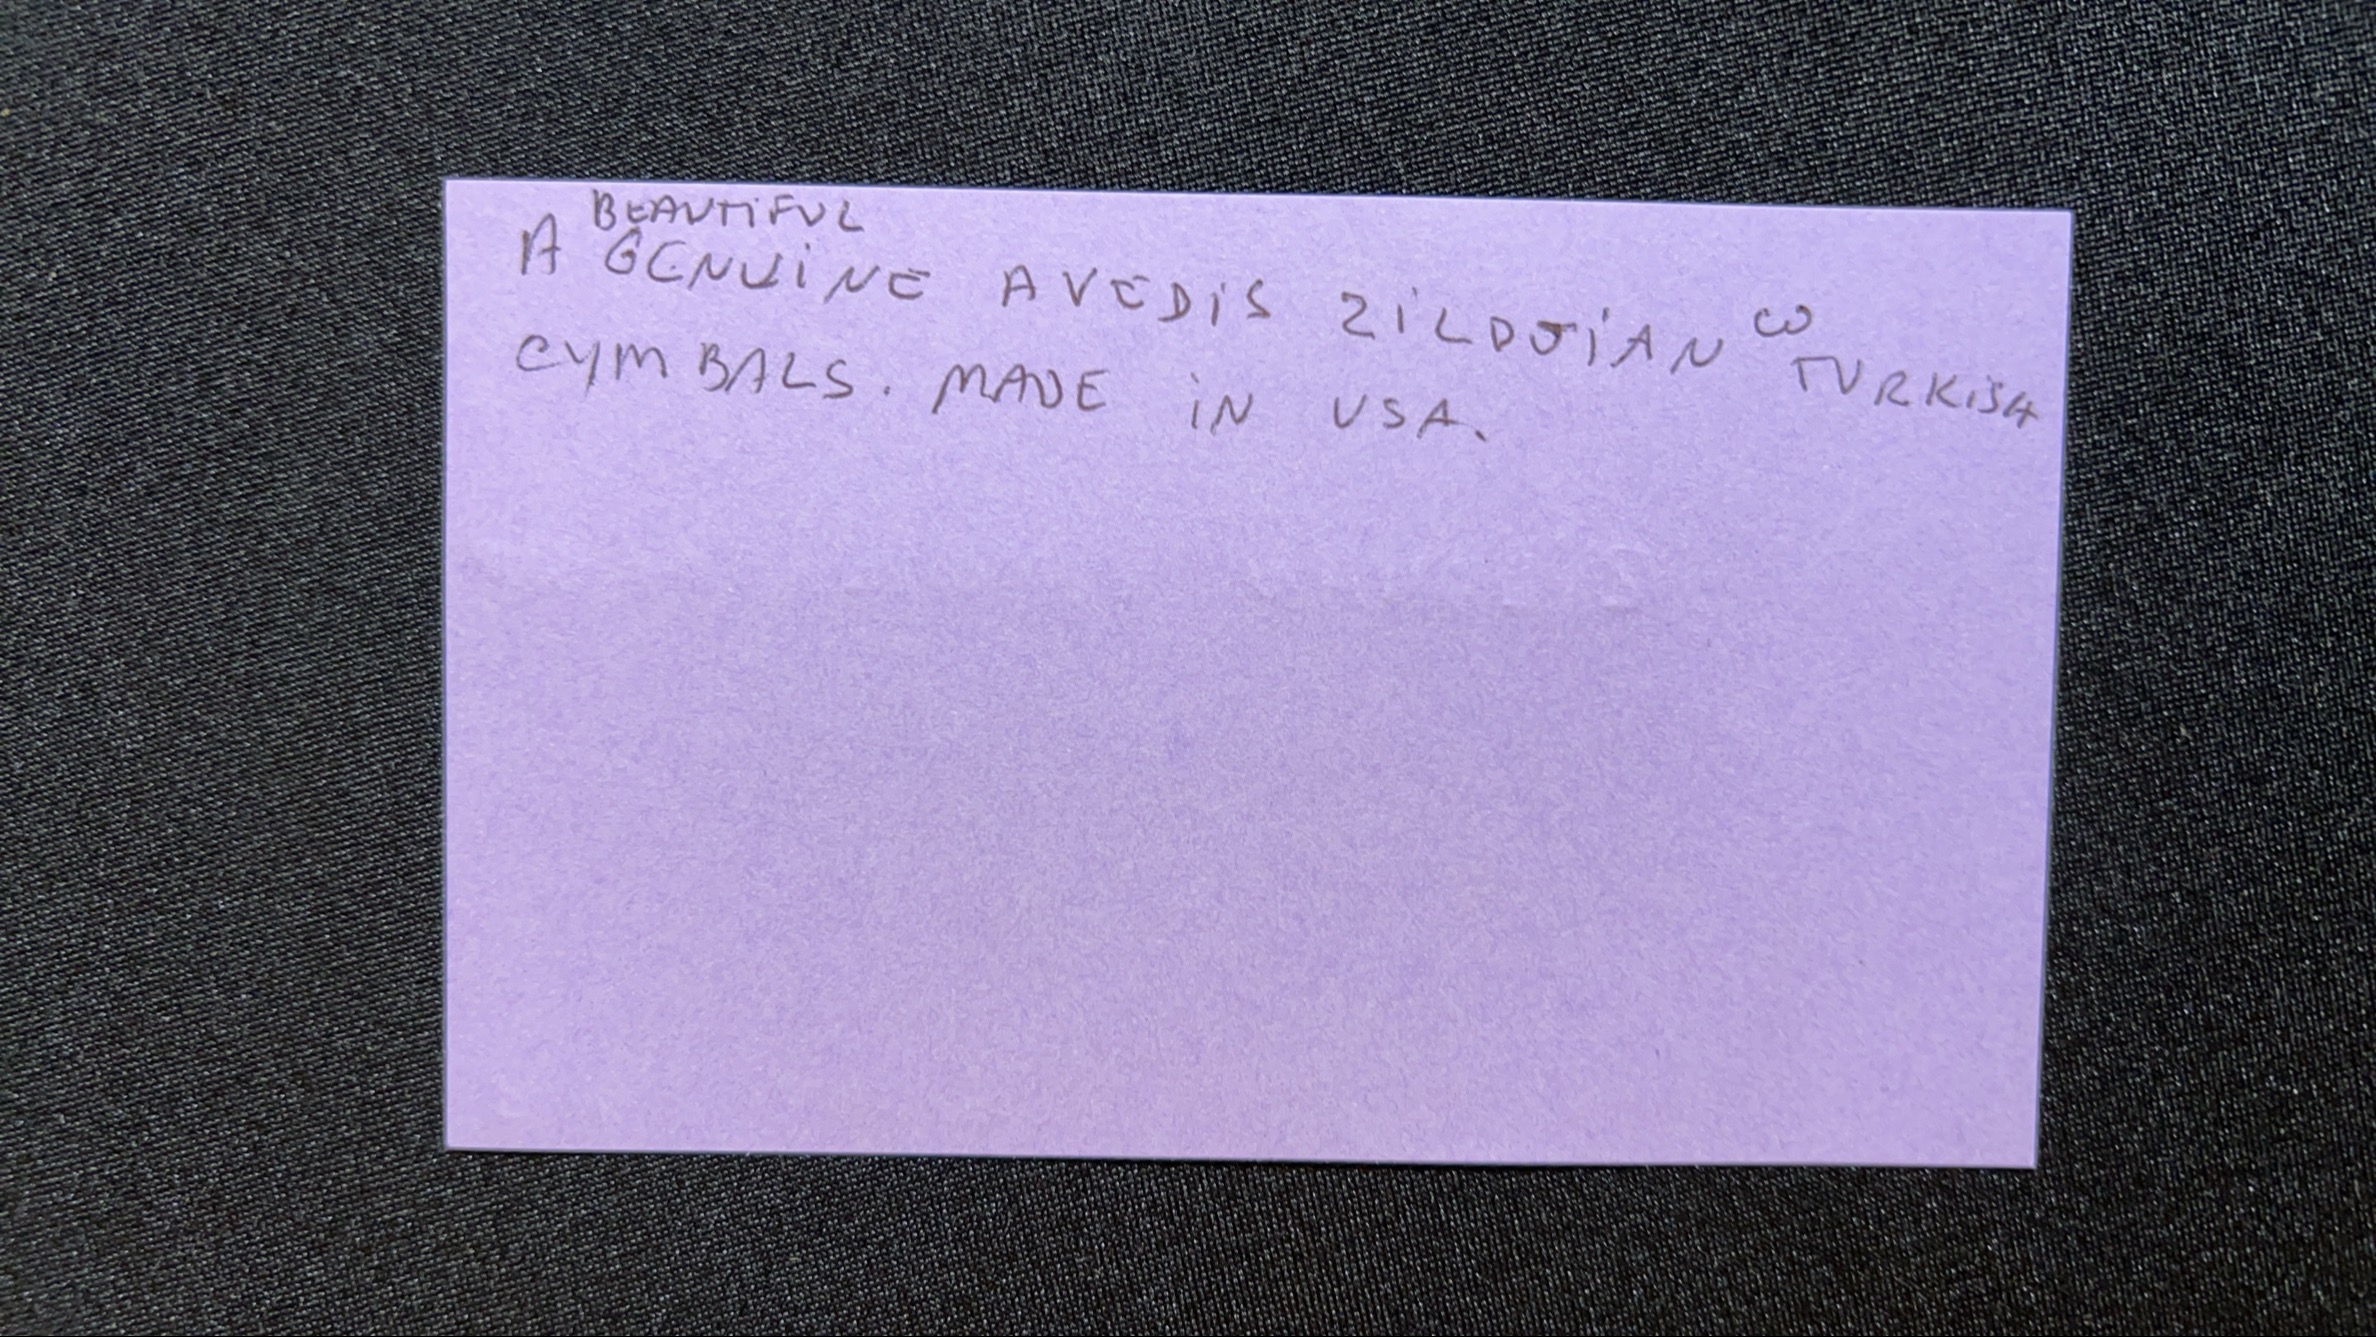 BEAUTiFUL
A GENUiNE AVEDiS ZiLDJiAN ω TURKiSH
CYMBALS. MADE iN USA.